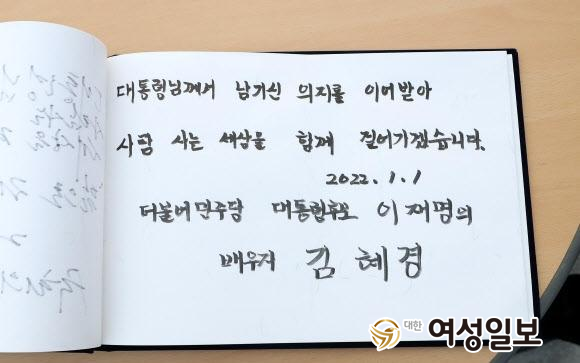 대통령님께서 남기신 의지를 이어받아
사람 사는 세상을 함께 걸어가겠습니다.
2022. 1. 1
더불어민주당 대통령후보 이재명의
배우자 김혜경
대한 여성일보